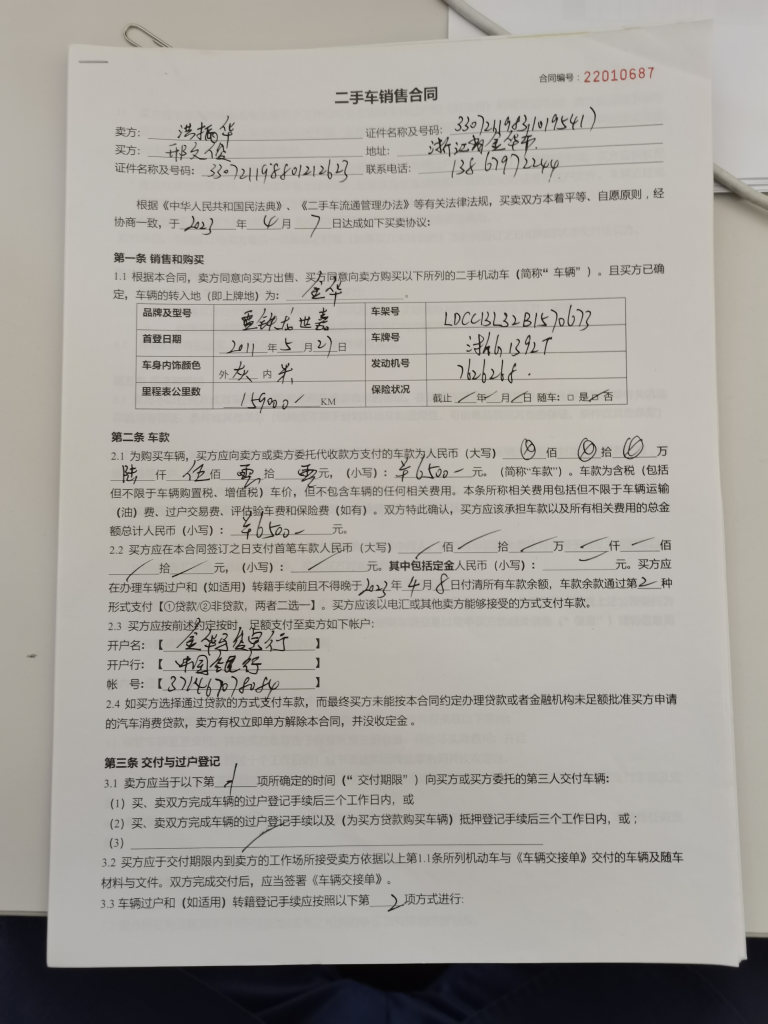 合同编号：22010687
二手车销售合同
卖方： 洪 华 证件名称及号码：330721198311019541
买方： 邢文俊 地址： 浙江省金华市
证件名称及号码：330721198801212623 联系电话： 13867972244
根据《中华人民共和国民法典》、《二手车流通管理办法》等有关法律法规，买卖双方本着平等、自愿原则，经
协商一致，于 2023 年 4 月 7 日达成如下买卖协议：
第一条 销售和购买
1.1 根据本合同，卖方同意向买方出售、买方同意向卖方购买以下所列的二手机动车（简称“ 车辆”）。且买方已确
定，车辆的转入地（即上牌地）为： 金华 。
品牌及型号 世嘉 车架号 LDCC13L32B1570673
首登日期 2011 年 5 月 27 日 车牌号 浙G1392T
车身内饰颜色 外 灰 内 米 发动机号 7626268.
里程表公里数 159000 KM 保险状况 截止 年 月 日 随车：□ 是 □ 否
第二条 车款
2.1 为购买车辆，买方应向卖方或卖方委托代收款方支付的车款为人民币（大写） 佰 拾 万
陆 仟 伍 佰 零 拾 零 元，（小写）：￥6500 元。（简称“车款”）。车款为含税（包括
但不限于车辆购置税、增值税）车价，但不包含车辆的任何相关费用。本条所称相关费用包括但不限于车辆运输
（油）费、过户交易费、评估验车费和保险费（如有）。双方特此确认，买方应该承担车款以及所有相关费用的总金
额总计人民币（小写）： ￥6500 元。
2.2 买方应在本合同签订之日支付首笔车款人民币（大写） 佰 拾 万 仟 佰
拾 元，（小写）： 元。其中包括定金人民币（小写）： 元。买方应
在办理车辆过户和（如适用）转籍手续前且不得晚于2023年 4月 8日付清所有车款余额，车款余款通过第 2 种
形式支付【①贷款②非贷款，两者二选一】。买方应该以电汇或其他卖方能够接受的方式支付车款。
2.3 买方应按前述约定按时、足额支付至卖方如下帐户：
开户名：【 金华 】
开户行：【 中国银行 】
帐 号：【 371467078084 】
2.4 如买方选择通过贷款的方式支付车款，而最终买方未能按本合同约定办理贷款或者金融机构未足额批准买方申请
的汽车消费贷款，卖方有权立即单方解除本合同，并没收定金 。
第三条 交付与过户登记
3.1 卖方应当于以下第 1 项所确定的时间（“ 交付期限”）向买方或买方委托的第三人交付车辆：
（1）买、卖双方完成车辆的过户登记手续后三个工作日内，或
（2）买、卖双方完成车辆的过户登记手续以及（为买方贷款购买车辆）抵押登记手续后三个工作日内，或；
（3）
3.2 买方应于交付期限内到卖方的工作场所接受卖方依据以上第1.1条所列机动车与《车辆交接单》交付的车辆及随车
材料与文件。双方完成交付后，应当签署《车辆交接单》。
3.3 车辆过户和（如适用）转籍登记手续应按照以下第 2 项方式进行：